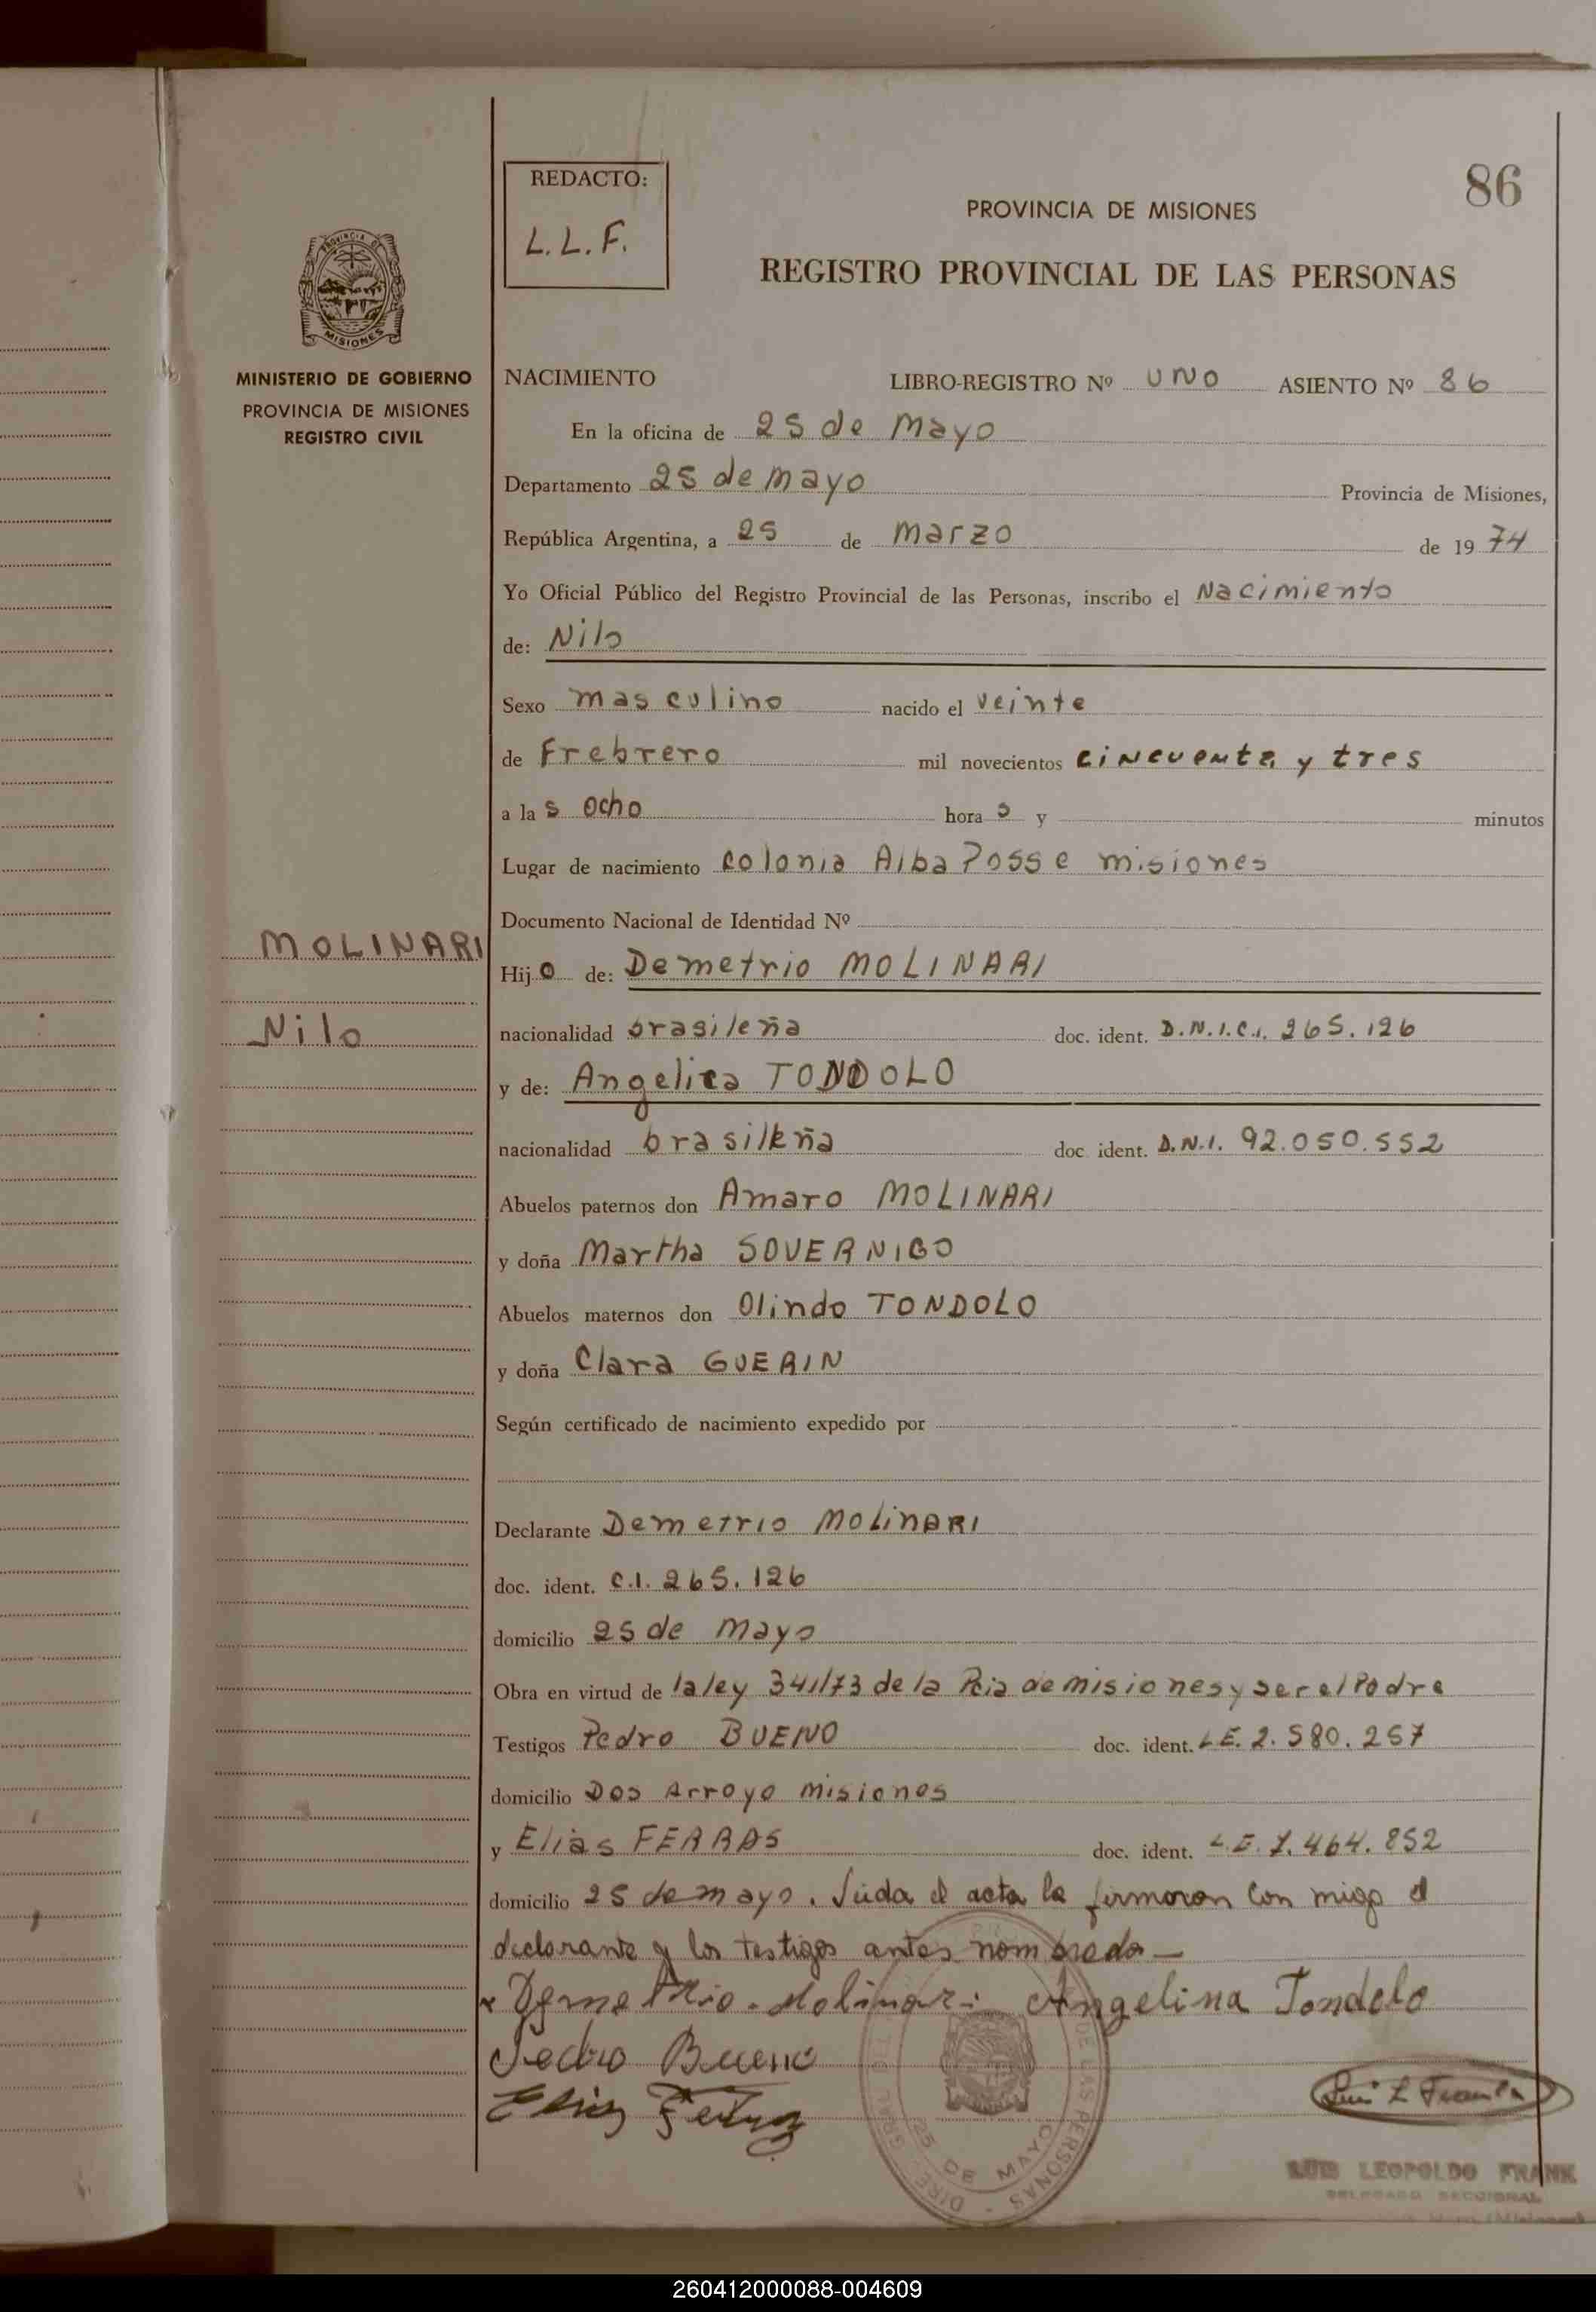 86
REDACTO:
L.L.F.
PROVINCIA DE MISIONES
REGISTRO PROVINCIAL DE LAS PERSONAS
PROVINCIA DE
MISIONES
MINISTERIO DE GOBIERNO
PROVINCIA DE MISIONES
REGISTRO CIVIL
NACIMIENTO LIBRO-REGISTRO Nº UNO ASIENTO Nº 86
En la oficina de 25 de Mayo
Departamento 25 de mayo Provincia de Misiones,
República Argentina, a 25 de Marzo de 19 74
Yo Oficial Público del Registro Provincial de las Personas, inscribo el Nacimiento
de: Nilo
Sexo masculino nacido el veinte
de Frebrero mil novecientos cincuenta y tres
a la s ocho hora s y minutos
Lugar de nacimiento colonia Alba Posse misiones
Documento Nacional de Identidad Nº
MOLINARI
Nilo
Hij o de: Demetrio MOLINARI
nacionalidad brasileña doc. ident. D.N.I.C.I. 265.126
y de: Angelica TONDOLO
nacionalidad brasileña doc. ident. D.N.I. 92.050.552
Abuelos paternos don Amaro MOLINARI
y doña Martha SOVERNIGO
Abuelos maternos don Olindo TONDOLO
y doña Clara GUERIN
Según certificado de nacimiento expedido por
Declarante Demetrio MOLINARI
doc. ident. C.I. 265.126
domicilio 25 de Mayo
Obra en virtud de la ley 341/73 de la Pcia de misiones y ser el Padre
Testigos Pedro BUENO doc. ident. L.E. 2.580.257
domicilio Dos Arroyo misiones
y Elias FERRAS doc. ident. L.E. 7.464.852
domicilio 25 de mayo. Leida el acta la firmaron con migo el
declarante y los testigos antes nombrado
Demetrio Molinari Angelina Tondolo
Pedro Bueno
Elias Ferras
Luis L Frank
25 DE MAYO
DE LAS PERSONAS
LUIS LEOPOLDO FRANK
DELEGADO SECCIONAL
260412000088-004609